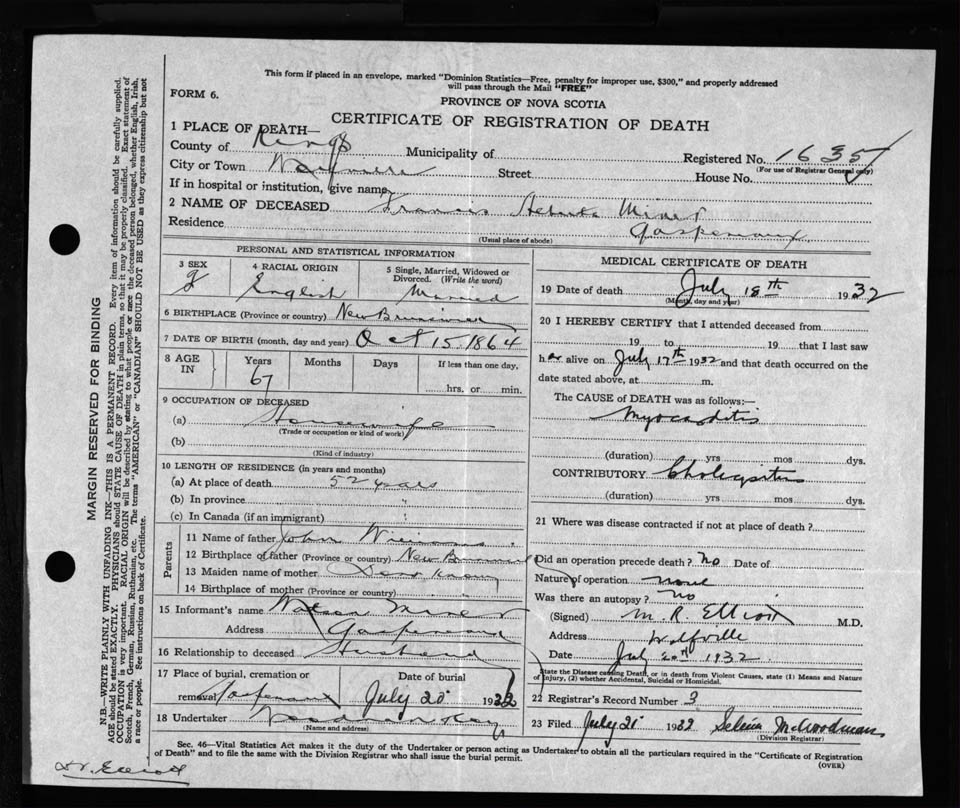 This form if placed in an envelope, marked "Dominion Statistics—Free, penalty for improper use, $300," and properly addressed
will pass through the Mail "FREE"
FORM 6.
PROVINCE OF NOVA SCOTIA
CERTIFICATE OF REGISTRATION OF DEATH
1 PLACE OF DEATH—
County of Kings Municipality of Registered No. 1635
(For use of Registrar General only)
City or Town Street House No.
If in hospital or institution, give name
2 NAME OF DECEASED Francis Miner
Residence Gaspereaux
(Usual place of abode)
PERSONAL AND STATISTICAL INFORMATION
3 SEX 4 RACIAL ORIGIN 5 Single, Married, Widowed or
Divorced. (Write the word)
English Married
6 BIRTHPLACE (Province or country) New Brunswick
7 DATE OF BIRTH (month, day and year) Oct 15 1864
8 AGE IN Years Months Days If less than one day,
67 hrs. or min.
9 OCCUPATION OF DECEASED
(a) Housewife
(Trade or occupation or kind of work)
(b)
(Kind of industry)
10 LENGTH OF RESIDENCE (in years and months)
(a) At place of death 52 years
(b) In province
(c) In Canada (if an immigrant)
Parents
11 Name of father John
12 Birthplace of father (Province or country) New Brunswick
13 Maiden name of mother Dont Know
14 Birthplace of mother (Province or country)
15 Informant's name Miner
Address Gaspereaux
16 Relationship to deceased Husband
17 Place of burial, cremation or Date of burial
removal Gaspereaux July 20 1932
18 Undertaker
(Name and address)
MEDICAL CERTIFICATE OF DEATH
19 Date of death July 18th 1932
(Month, day and year)
20 I HEREBY CERTIFY that I attended deceased from
19 to 19 that I last saw
her alive on July 17th 1932 and that death occurred on the
date stated above, at m.
The CAUSE of DEATH was as follows:—
Myocarditis
(duration) yrs mos dys.
CONTRIBUTORY
(duration) yrs mos dys.
21 Where was disease contracted if not at place of death?
Did an operation precede death? no Date of
Nature of operation none
Was there an autopsy? no
(Signed) M. R. Elliott M.D.
Address Wolfville
Date July 20th 1932
State the Disease causing Death, or in death from Violent Causes, state (1) Means and Nature
of Injury, (2) whether Accidental, Suicidal or Homicidal.
22 Registrar's Record Number 3
23 Filed July 21 1932
(Division Registrar)
Sec. 46—Vital Statistics Act makes it the duty of the Undertaker or person acting as Undertaker to obtain all the particulars required in the "Certificate of Registration
of Death" and to file the same with the Division Registrar who shall issue the burial permit. (OVER)
Dr. Elliott
MARGIN RESERVED FOR BINDING
N.B.—WRITE PLAINLY WITH UNFADING INK—THIS IS A PERMANENT RECORD. Every item of information should be carefully supplied.
AGE should be stated EXACTLY. PHYSICIANS should STATE CAUSE OF DEATH in plain terms, so that it may be properly classified. Exact statement of
OCCUPATION is very important. RACIAL ORIGIN will be described by stating to what people or race the deceased person belonged, whether English, Irish,
Scotch, French, German, Russian, Ruthenian, etc. The terms "AMERICAN" or "CANADIAN" SHOULD NOT BE USED as they express citizenship but not
a race or people. See instructions on back of Certificate.